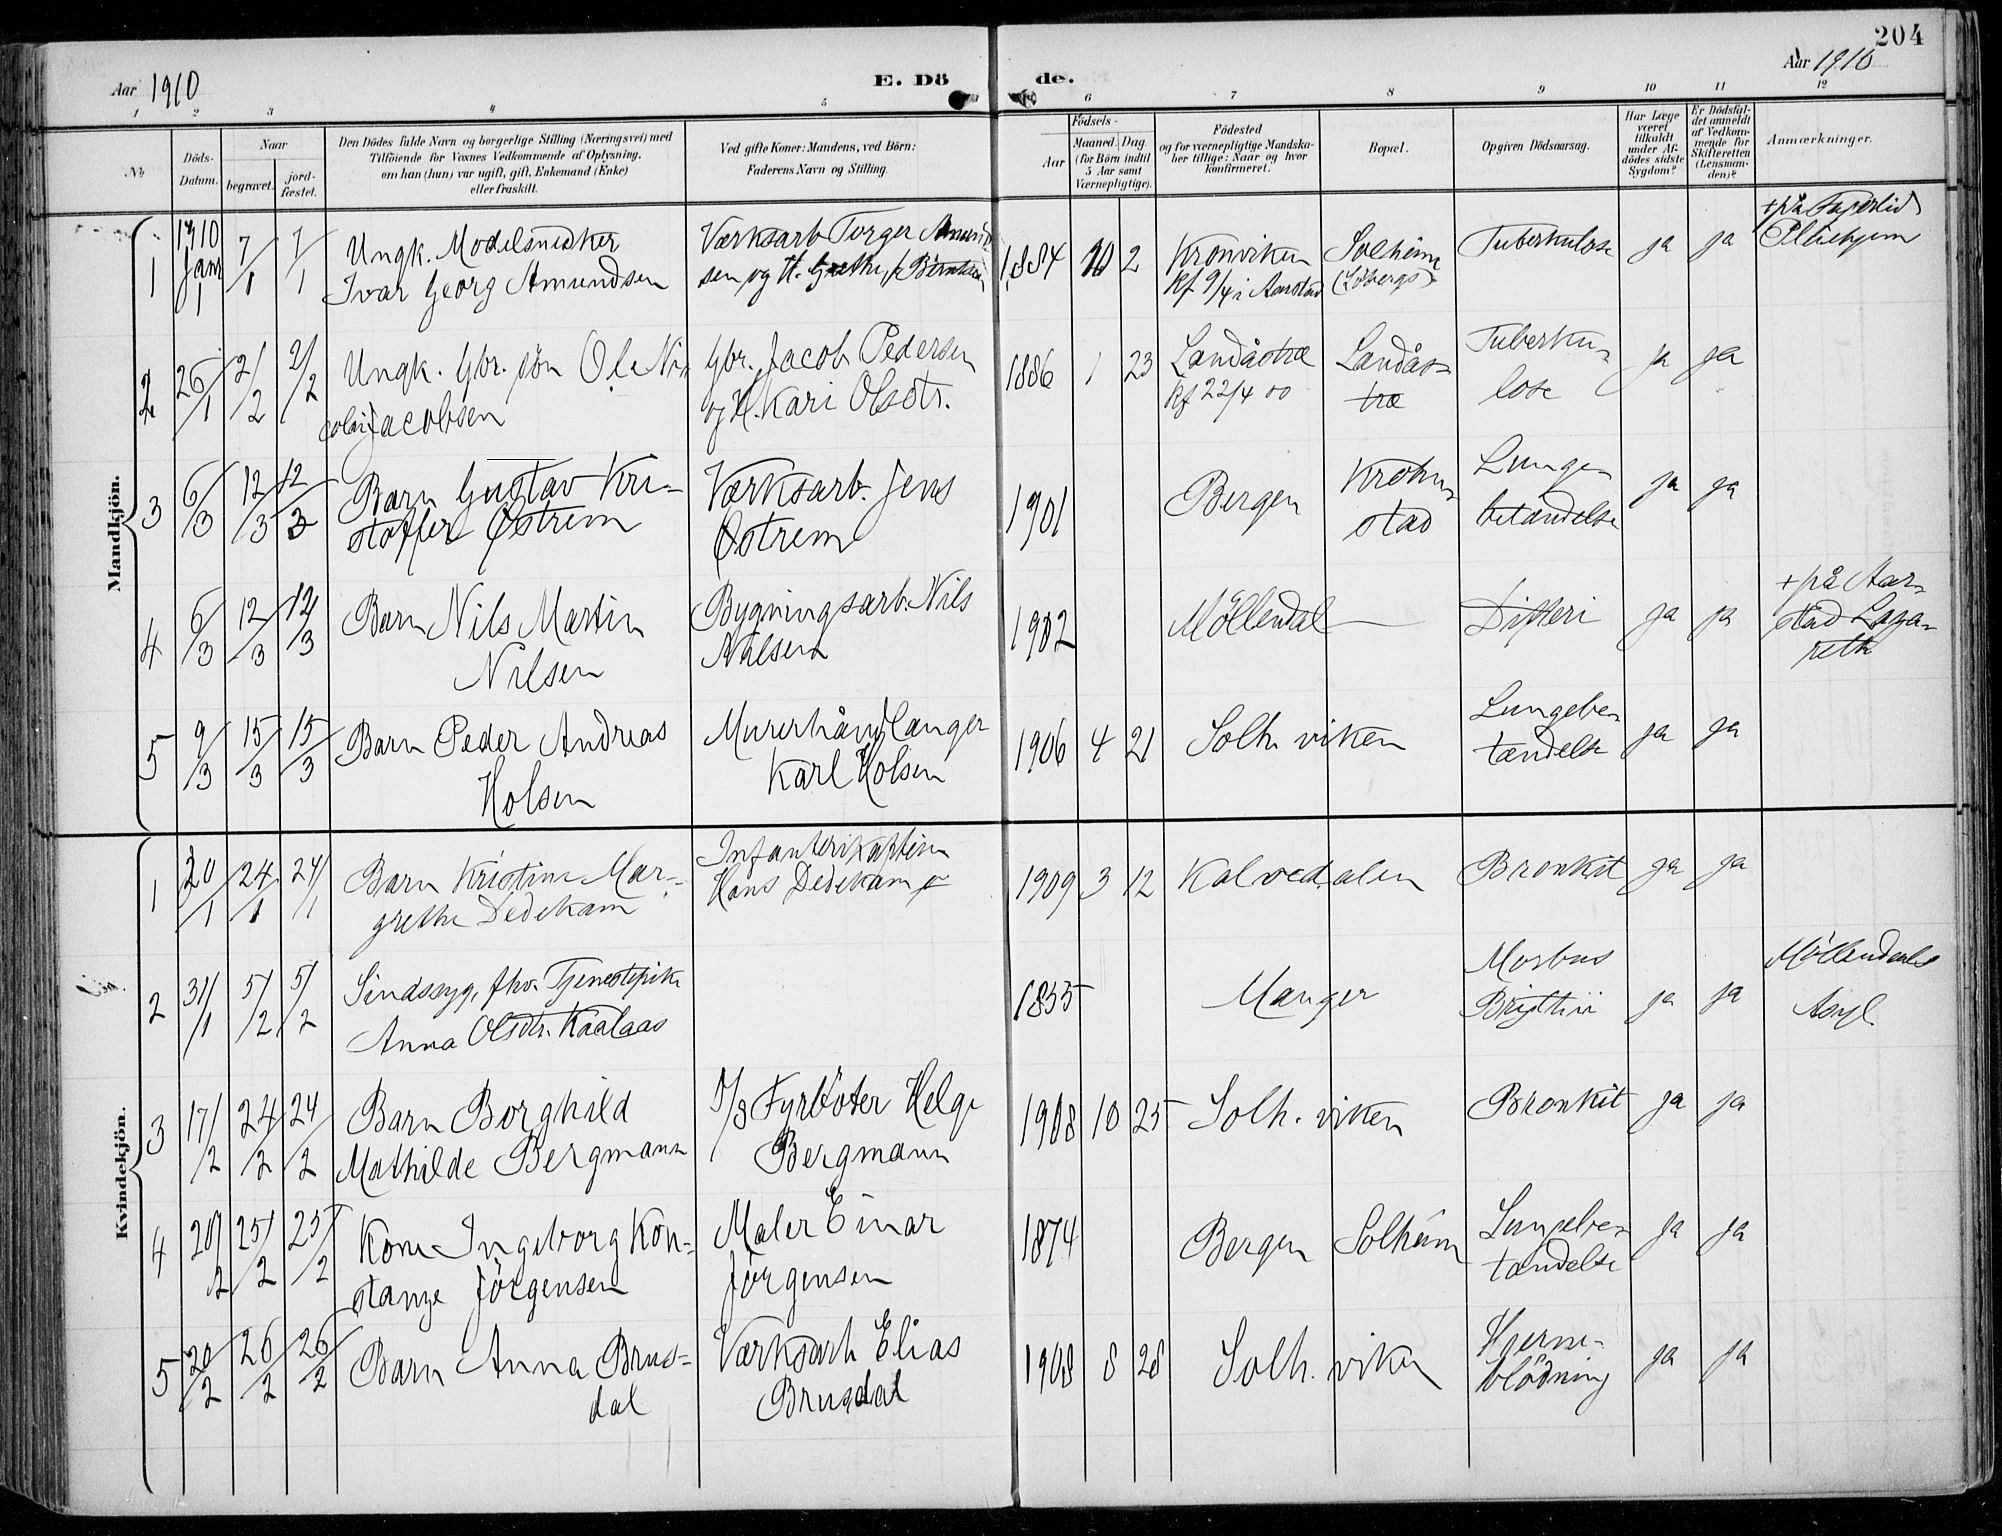 204
Aar 1910
E. Döde.
Aar 1910
1 2 3 4 5 6 7 8 9 10 11 12
No
Döds-Datum.
Naar
begravet.
jordfæstet.
Den Dödes fulde Navn og borgerlige Stilling (Næringsvei) med
Tilföiende for Voxnes Vedkommende af Oplysning,
om han (hun) var ugift, gift, Enkemand (Enke)
eller fraskilt.
Ved gifte Koner: Mandens, ved Börn:
Faderens Navn og Stilling.
Födsels-
Aar
Maaned. Dag.
(for Börn indtil
5 Aar samt
Værnepligtige).
Födested
og for værnepligtige Mandskaber tillige: Naar og hvor
konfirmeret.
Bopæl.
Opgiven Dödsaarsag.
Har Læge
været
tilkaldt
under Afdödes sidste
Sygdom?
Er Dödsfaldet anmeldt
af Vedkommende for
Skifteretten
(Lensmanden)?
Anmærkninger.
Mandkjön.
1 1910 Janr 1 7/1 7/1 Ungk. Modelsnedker
Ivar Georg Amundsen
Værksarb Torger Amundsen og H.
1884 10 2 Kronviken
Kf 9/4 i Aarstad
Solheim
Tuberkulose ja ja + på Fagerlid
Pleiehjem
2 26/1 2/2 2/2 Ungk. Gbr. søn Ole Nicolai Jacobsen
Gbr. Jacob Pedersen
og H. Kari Olsdtr.
1886 1 23 Landåstræ
Kf 22/4 00
Landåstræ
Tuberkulose ja ja
3 6/3 12/3 12/3 Barn Gustav Kristoffer Østrem
Værksarb. Jens
Østrem
1901 Bergen Krohnstad
Lungebetændelse ja ja
4 6/3 12/3 12/3 Barn Nils Martin
Nilsen
Bygningsarb. Nils
Nilsen
1902 Möllendal Difteri ja ja + på Aarstad Lazareth
5 9/3 15/3 15/3 Barn Peder Andreas
Holsen
Murerhåndlanger
Karl Holsen
1906 4 21 Solh. viken Lungebetændelse ja ja
Kvindekjön.
1 20/1 24/1 24/1 Barn Kristine Margrethe Dedekam
Infanterikaptein
Hans Dedekam
1909 3 12 Kalvedalen Bronkit ja ja
2 31/1 5/2 5/2 Sindssyg, fhv. Tjenestepike
Anna Olsdtr. Kaalaas
1855 Manger Morbus
Brightii ja ja Möllendals
Asyl.
3 17/2 24/2 24/2 Barn Borghild
Mathilde Bergmann
D/S Fyrböter Helge
Bergmann
1908 10 25 Solh. viken Bronkit ja ja
4 20/2 25/2 25/2 Kone Ingeborg Konstanze Jörgensen
Maler Einar
Jörgensen
1874 Bergen Solheim Lungebetændelse ja ja
5 20/2 26/2 26/2 Barn Anna Brusdal
Værksarb Elias
Brusdal
1908 8 28 Solh. viken Hjerneblödning ja ja